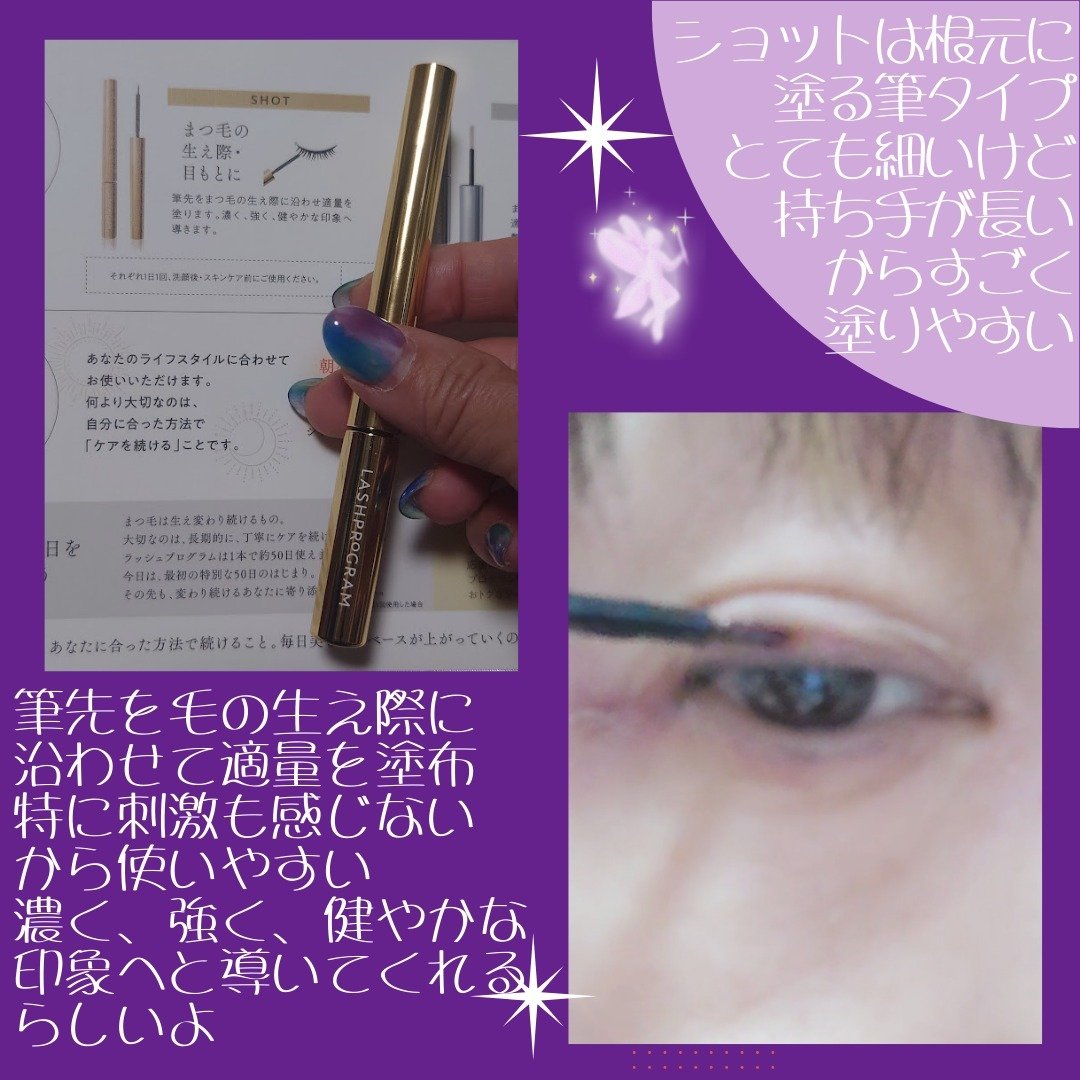 ショットは根元に
塗る筆タイプ
とても細いけど
持ち手が長い
からすごく
塗りやすい
SHOT
まつ毛の
生え際・
目もとに
筆先をまつ毛の生え際に沿わせ適量を
塗ります。濃く、強く、健やかな印象へ
導きます。
それぞれ1日1回、洗顔後・スキンケア前にご使用ください。
あなたのライフスタイルに合わせて
お使いいただけます。
何より大切なのは、
自分に合った方法で
「ケアを続ける」ことです。
朝
LASHPROGRAM
まつ毛は生え変わり続けるもの。
大切なのは、長期的に、丁寧にケアを続け
ラッシュプログラムは1本で約50日使えま
今日は、最初の特別な50日のはじまり。
その先も、変わり続けるあなたに寄り添
日を
使用した場合
あなたに合った方法で続けること。毎日美
ベースが上がっていくの
筆先を毛の生え際に
沿わせて適量を塗布
特に刺激も感じない
から使いやすい
濃く、強く、健やかな
印象へと導いてくれる
らしいよ